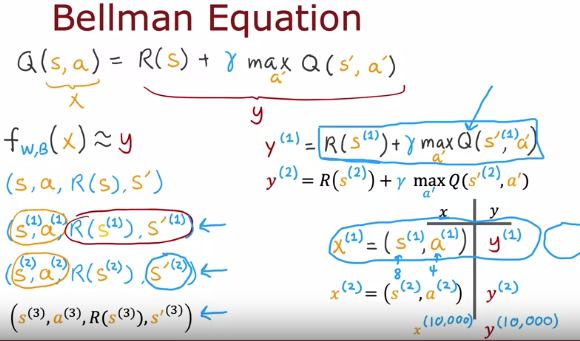 Bellman Equation
Q(s,a) = R(s) + γ max Q(s',a')
a'
x
y
f_{W,B}(x) ≈ y
(s, a, R(s), s')
(s^{(1)}, a^{(1)}, R(s^{(1)}), s'^{(1)}) ←
(s^{(2)}, a^{(2)}, R(s^{(2)}), s'^{(2)}) ←
(s^{(3)}, a^{(3)}, R(s^{(3)}), s'^{(3)}) ←
y^{(1)} = R(s^{(1)}) + γ max Q(s'^{(1)}, a')
a'
y^{(2)} = R(s^{(2)}) + γ max Q(s'^{(2)}, a')
a'
x y
x^{(1)} = (s^{(1)}, a^{(1)}) y^{(1)}
8 4
x^{(2)} = (s^{(2)}, a^{(2)}) y^{(2)}
x^{(10,000)} y^{(10,000)}